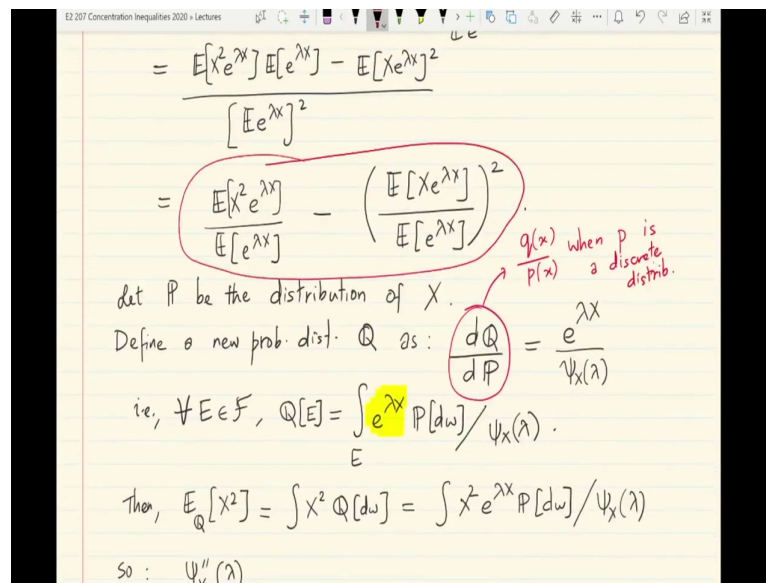 E2 207 Concentration Inequalities 2020 » Lectures
= E[X²e^{λX}] E[e^{λX}] − E[Xe^{λX}]² / [Ee^{λX}]²
= E[X²e^{λX}] / E[e^{λX}] − (E[Xe^{λX}] / E[e^{λX}])².
q(x)/p(x) when P is
a discrete
distrib.
Let ℙ be the distribution of X.
Define a new prob. dist. Q as: dQ/dℙ = e^{λX} / ψ_X(λ)
i.e., ∀ E ∈ F, Q[E] = ∫_E e^{λX} ℙ[dω] / ψ_X(λ).
Then, E_Q[X²] = ∫ X² Q[dω] = ∫ X² e^{λX} ℙ[dω] / ψ_X(λ)
So : ψ_X''(λ)